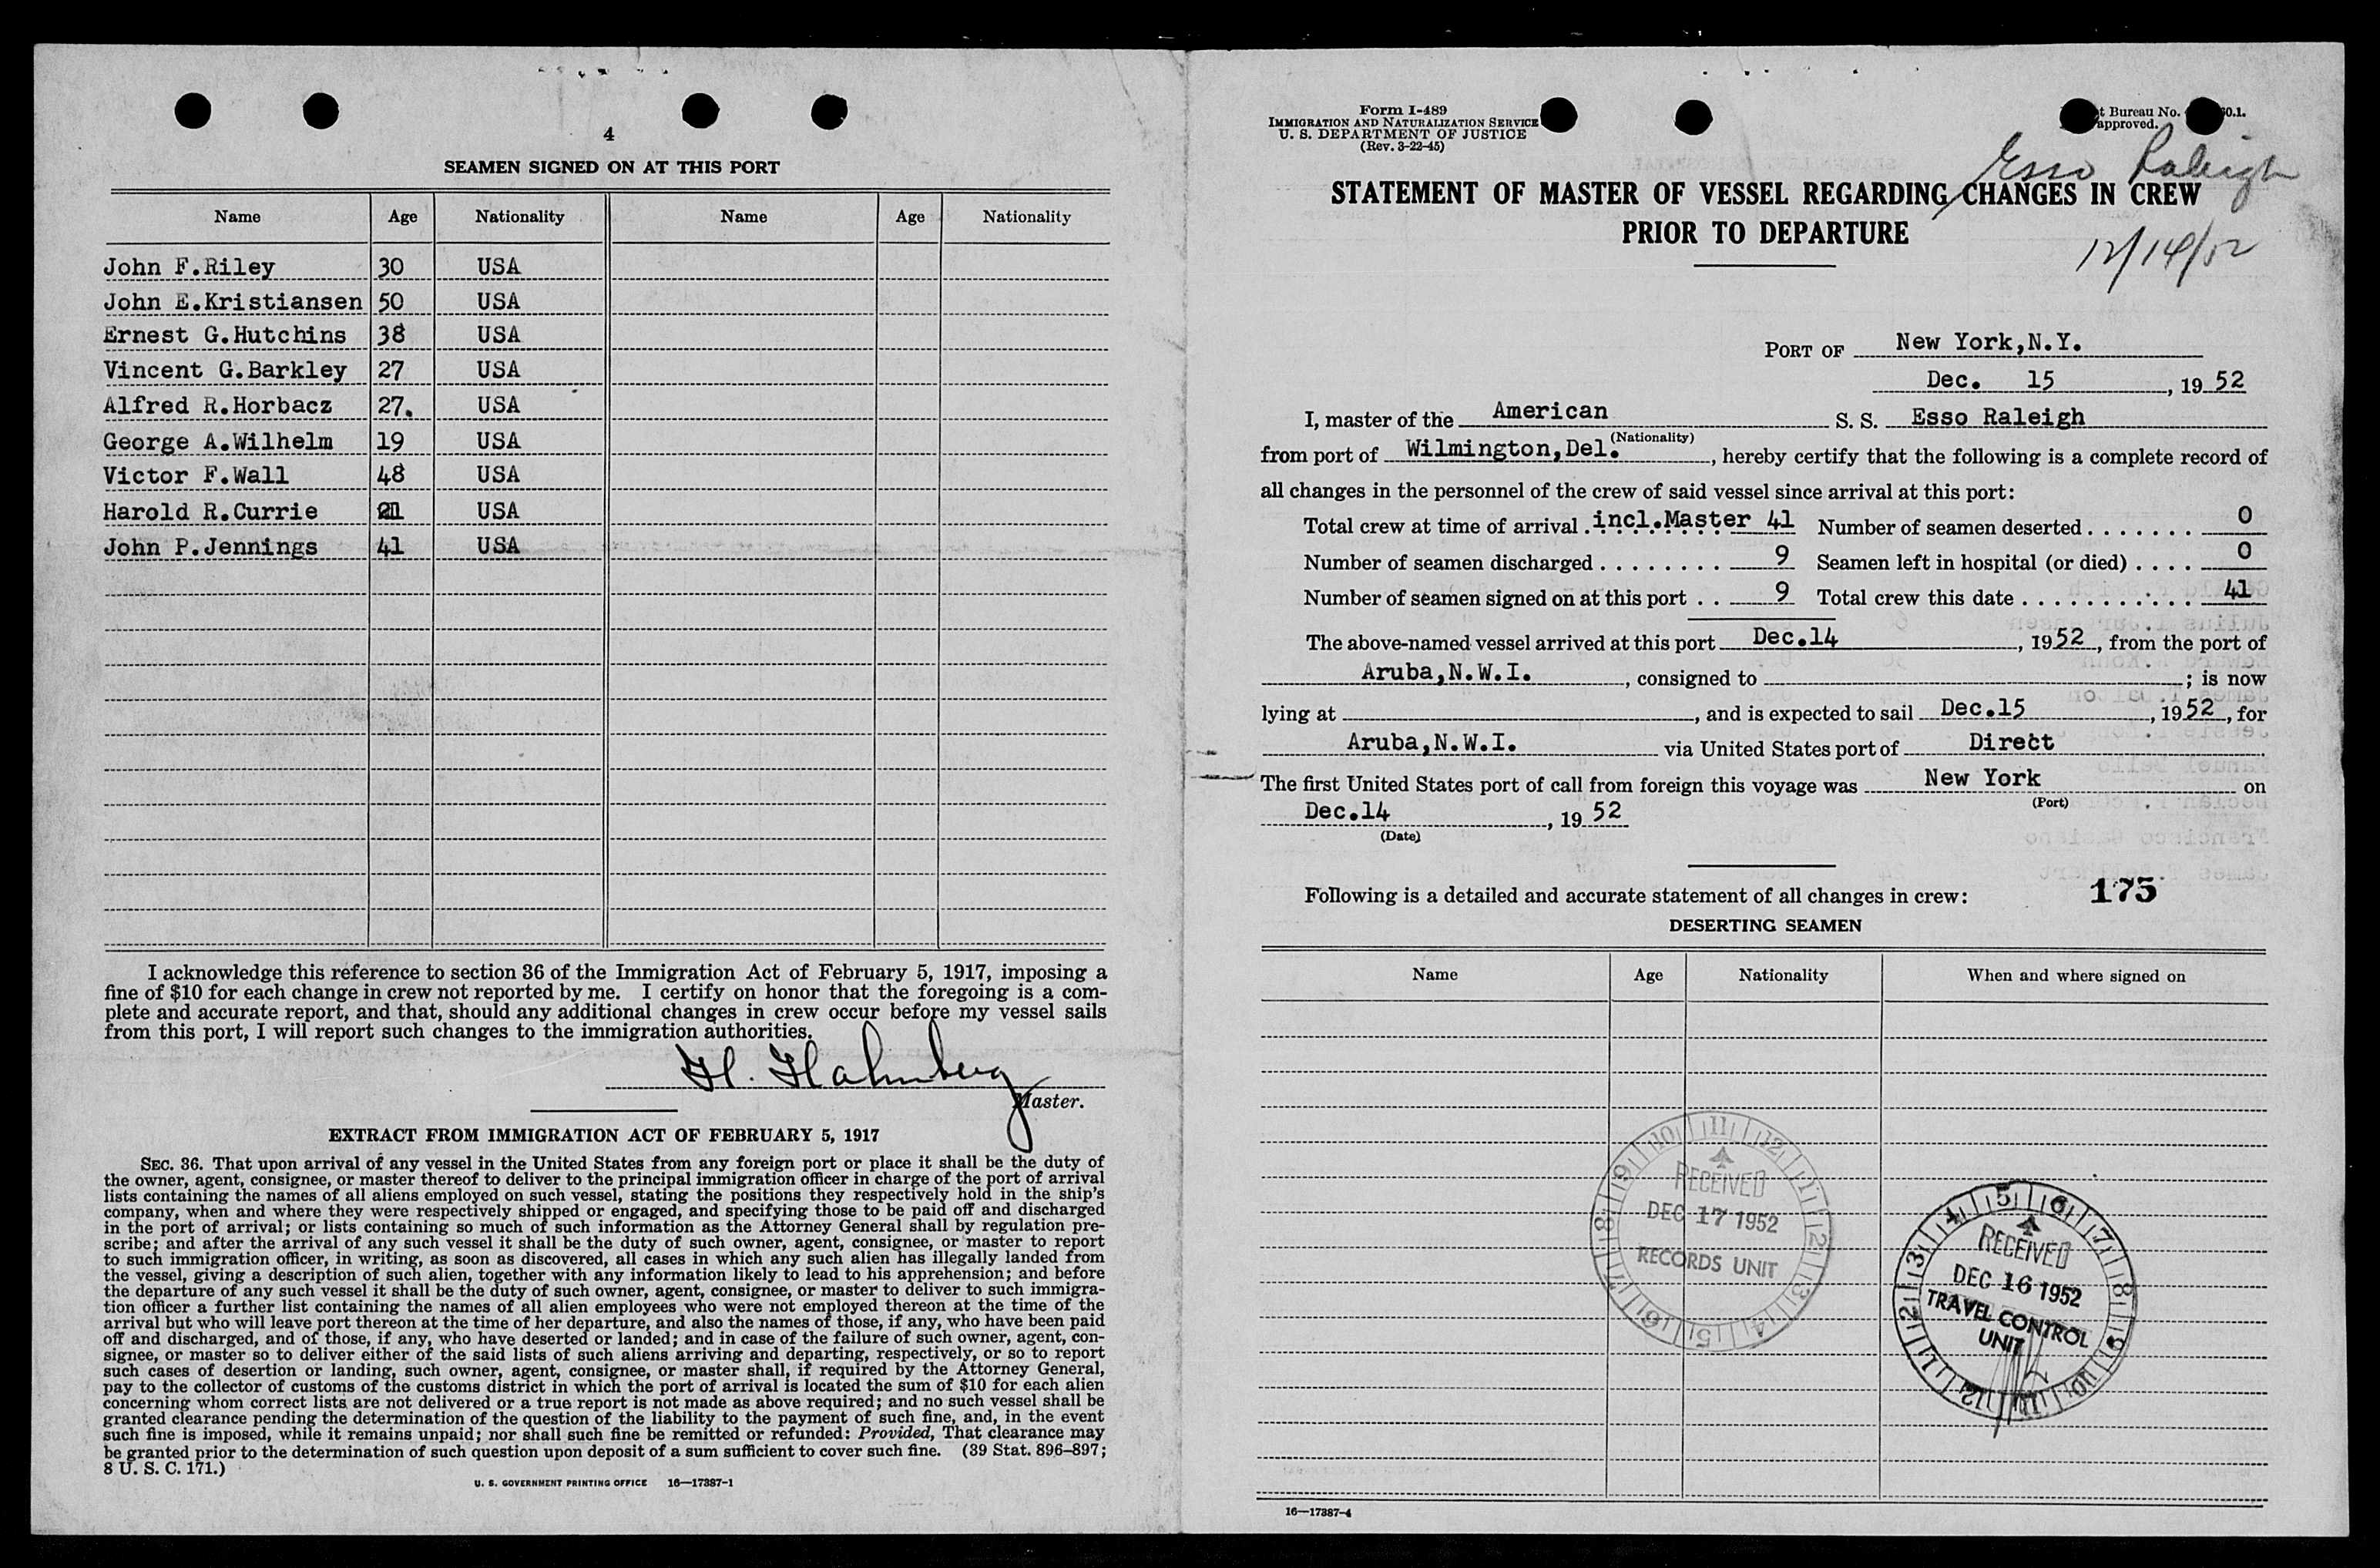 4
SEAMEN SIGNED ON AT THIS PORT
Name Age Nationality Name Age Nationality
John F.Riley 30 USA
John E.Kristiansen 50 USA
Ernest G.Hutchins 38 USA
Vincent G.Barkley 27 USA
Alfred R.Horbacz 27. USA
George A.Wilhelm 19 USA
Victor F.Wall 48 USA
Harold R.Currie 21 USA
John P.Jennings 41 USA
I acknowledge this reference to section 36 of the Immigration Act of February 5, 1917, imposing a
fine of $10 for each change in crew not reported by me. I certify on honor that the foregoing is a com-
plete and accurate report, and that, should any additional changes in crew occur before my vessel sails
from this port, I will report such changes to the immigration authorities.
Master.
EXTRACT FROM IMMIGRATION ACT OF FEBRUARY 5, 1917
SEC. 36. That upon arrival of any vessel in the United States from any foreign port or place it shall be the duty of
the owner, agent, consignee, or master thereof to deliver to the principal immigration officer in charge of the port of arrival
lists containing the names of all aliens employed on such vessel, stating the positions they respectively hold in the ship's
company, when and where they were respectively shipped or engaged, and specifying those to be paid off and discharged
in the port of arrival; or lists containing so much of such information as the Attorney General shall by regulation pre-
scribe; and after the arrival of any such vessel it shall be the duty of such owner, agent, consignee, or master to report
to such immigration officer, in writing, as soon as discovered, all cases in which any such alien has illegally landed from
the vessel, giving a description of such alien, together with any information likely to lead to his apprehension; and before
the departure of any such vessel it shall be the duty of such owner, agent, consignee, or master to deliver to such immigra-
tion officer a further list containing the names of all alien employees who were not employed thereon at the time of the
arrival but who will leave port thereon at the time of her departure, and also the names of those, if any, who have been paid
off and discharged, and of those, if any, who have deserted or landed; and in case of the failure of such owner, agent, con-
signee, or master so to deliver either of the said lists of such aliens arriving and departing, respectively, or so to report
such cases of desertion or landing, such owner, agent, consignee, or master shall, if required by the Attorney General,
pay to the collector of customs of the customs district in which the port of arrival is located the sum of $10 for each alien
concerning whom correct lists are not delivered or a true report is not made as above required; and no such vessel shall be
granted clearance pending the determination of the question of the liability to the payment of such fine, and, in the event
such fine is imposed, while it remains unpaid; nor shall such fine be remitted or refunded: Provided, That clearance may
be granted prior to the determination of such question upon deposit of a sum sufficient to cover such fine. (39 Stat. 896–897;
8 U. S. C. 171.)
U. S. GOVERNMENT PRINTING OFFICE 16—17387-1
Form I-489
IMMIGRATION AND NATURALIZATION SERVICE
U. S. DEPARTMENT OF JUSTICE
(Rev. 3-22-45)
Bureau No.
approved.
Esso Raleigh
STATEMENT OF MASTER OF VESSEL REGARDING CHANGES IN CREW
PRIOR TO DEPARTURE
12/14/52
PORT OF New York,N.Y.
Dec. 15, 19 52
I, master of the American S. S. Esso Raleigh
(Nationality)
from port of Wilmington,Del., hereby certify that the following is a complete record of
all changes in the personnel of the crew of said vessel since arrival at this port:
Total crew at time of arrival incl.Master 41 Number of seamen deserted . . . . . . . 0
Number of seamen discharged . . . . . . . . 9 Seamen left in hospital (or died) . . . . 0
Number of seamen signed on at this port . . 9 Total crew this date . . . . . . . . . . . 41
The above-named vessel arrived at this port Dec.14, 1952, from the port of
Aruba,N.W.I., consigned to ; is now
lying at , and is expected to sail Dec.15, 1952, for
Aruba,N.W.I. via United States port of Direct
The first United States port of call from foreign this voyage was New York on
(Port)
Dec.14, 19 52
(Date)
Following is a detailed and accurate statement of all changes in crew: 175
DESERTING SEAMEN
Name Age Nationality When and where signed on
RECEIVED
DEC 17 1952
RECORDS UNIT
RECEIVED
DEC 16 1952
TRAVEL CONTROL
UNIT
16—17387-4